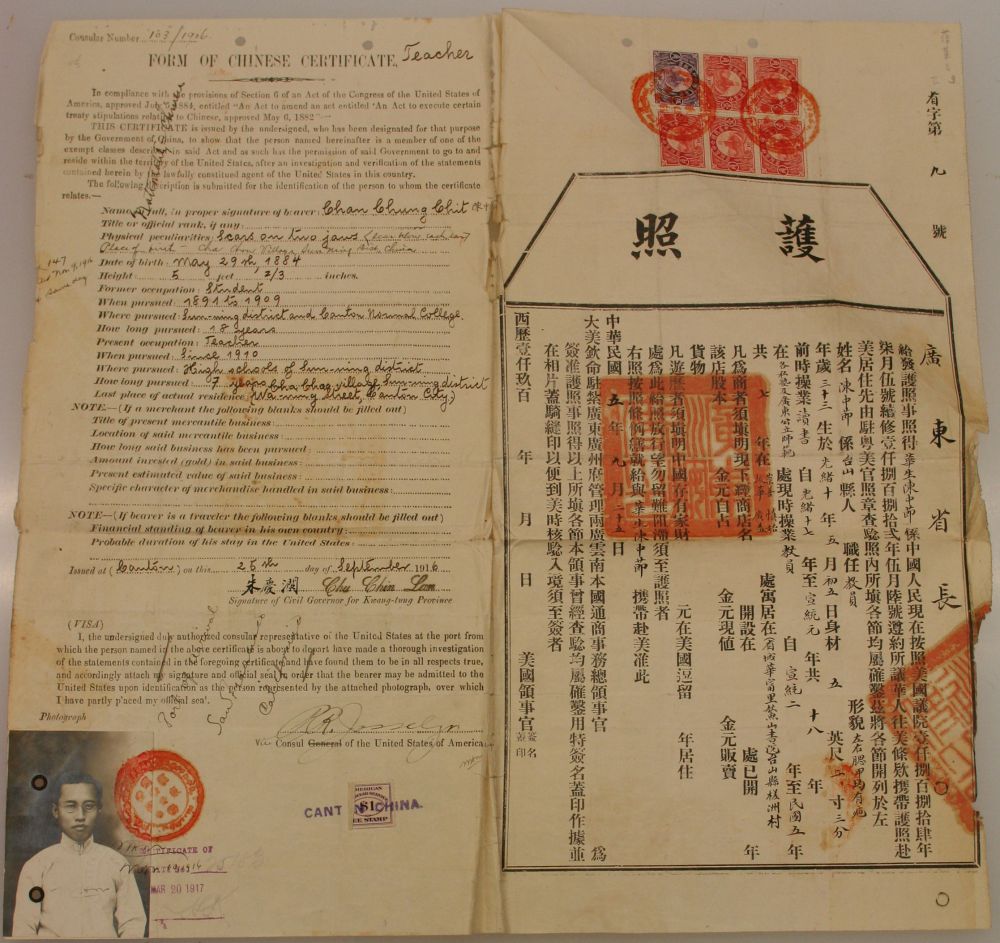 Consular Number 103/1916
FORM OF CHINESE CERTIFICATE, Teacher
In compliance with the provisions of Section 6 of an Act of the Congress of the United States of
America, approved July 5, 1884, entitled "An Act to amend an act entitled 'An Act to execute certain
treaty stipulations relating to Chinese, approved May 6, 1882'"—
THIS CERTIFICATE is issued by the undersigned, who has been designated for that purpose
by the Government of China, to show that the person named hereinafter is a member of one of the
exempt classes described in said Act and as such has the permission of said Government to go to and
reside within the territory of the United States, after an investigation and verification of the statements
contained herein by the lawfully constituted agent of the United States in this country.
The following description is submitted for the identification of the person to whom the certificate
relates.—
Name in full, in proper signature of bearer: Chan Chung Chit
Title or official rank, if any:
Physical peculiarities: Scars on two jaws
Place of birth – Village Sun-ning Dist. China
Date of birth: May 29th, 1884
Height: 5 feet 2/3 inches.
Former occupation: Student
When pursued: 1891 to 1909
Where pursued: Sun-ning district and Canton Normal College.
How long pursued: 18 years
Present occupation: Teacher
When pursued: Since 1910
Where pursued: High schools of Sun-ning district
How long pursued: 7 years
Last place of actual residence: Cha Chao village, Sun-ning district
(Wai-ning Street, Canton City.)
NOTE.—(If a merchant the following blanks should be filled out)
Title of present mercantile business:
Location of said mercantile business:
How long said business has been pursued:
Amount invested (gold) in said business:
Present estimated value of said business:
Specific character of merchandise handled in said business:
NOTE.—(If bearer is a traveler the following blanks should be filled out)
Financial standing of bearer in his own country:
Probable duration of his stay in the United States:
Issued at (Canton) on this 25th day of September 1916
朱慶瀾 Chu Chin Lan
Signature of Civil Governor for Kwang-tung Province
(VISA)
I, the undersigned duly authorized consular representative of the United States at the port from
which the person named in the above certificate is about to depart have made a thorough investigation
of the statements contained in the foregoing certificate and have found them to be in all respects true,
and accordingly attach my signature and official seal in order that the bearer may be admitted to the
United States upon identification as the person represented by the attached photograph, over which
I have partly placed my official seal.
Photograph
Vice Consul General of the United States of America
CANTON CHINA.
AMERICAN
$1
FEE STAMP
CERTIFICATE OF
MAR 20 1917
省字第九號
護照
廣東省長
給發護照事照得華生陳中節係中國人民現在按照美國議院壹仟捌百捌拾肆年
柒月伍號續修壹仟捌百捌拾貳年伍月陸號遵約所議華人往美條欵携帶護照赴
美居住先由駐粤美官照章查騐照內所填各節均屬確鑿茲將各節開列於左
姓名陳中節 係台山縣人 職任教員 形貌左右腮甲均有疤
年歲三十三生於光緒十年五月初五日身材五英尺 寸三分
前時操業讀書 自光緒十七年至宣統元年共十八年
在各私塾及廣東公立師範處現時操業教員 自宣統二年至民國五年
共七年在 處寓居在省城華富里鰲山書院台山縣槎洲村
凡爲商者須塡明現下經商店名 開設在 處已開 年
該店股本 金元百占 金元現値 金元販賣
貨物
凡遊歷者須塡明中國存有家財 元在美國逗留 年居住
處爲此給照放行望勿留難阻滯須至護照者
右照按照條例應就給與華生陳中節 携帶赴美准此
中華民國五年九月二十五日
大美欽命駐紮廣東廣州府管理兩廣雲南本國通商事務總領事官 爲
簽准護照事照得以上所填各節本領事曾經查騐均屬確鑿用特簽名蓋印作據並
在相片蓋騎縫印以便到美時核騐入境須至簽者
西歷壹仟玖百 年 月 日 美國領事官簽名蓋印